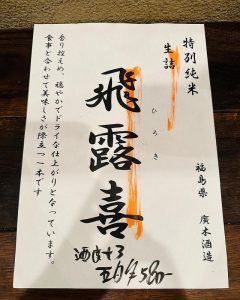 特別純米
生詰
福島県　廣木酒造
飛露喜
ひろき
香り控えめ、穏やかでドライな仕上がりとなっています。
食事と合わせて美味しさが際立つ一本です